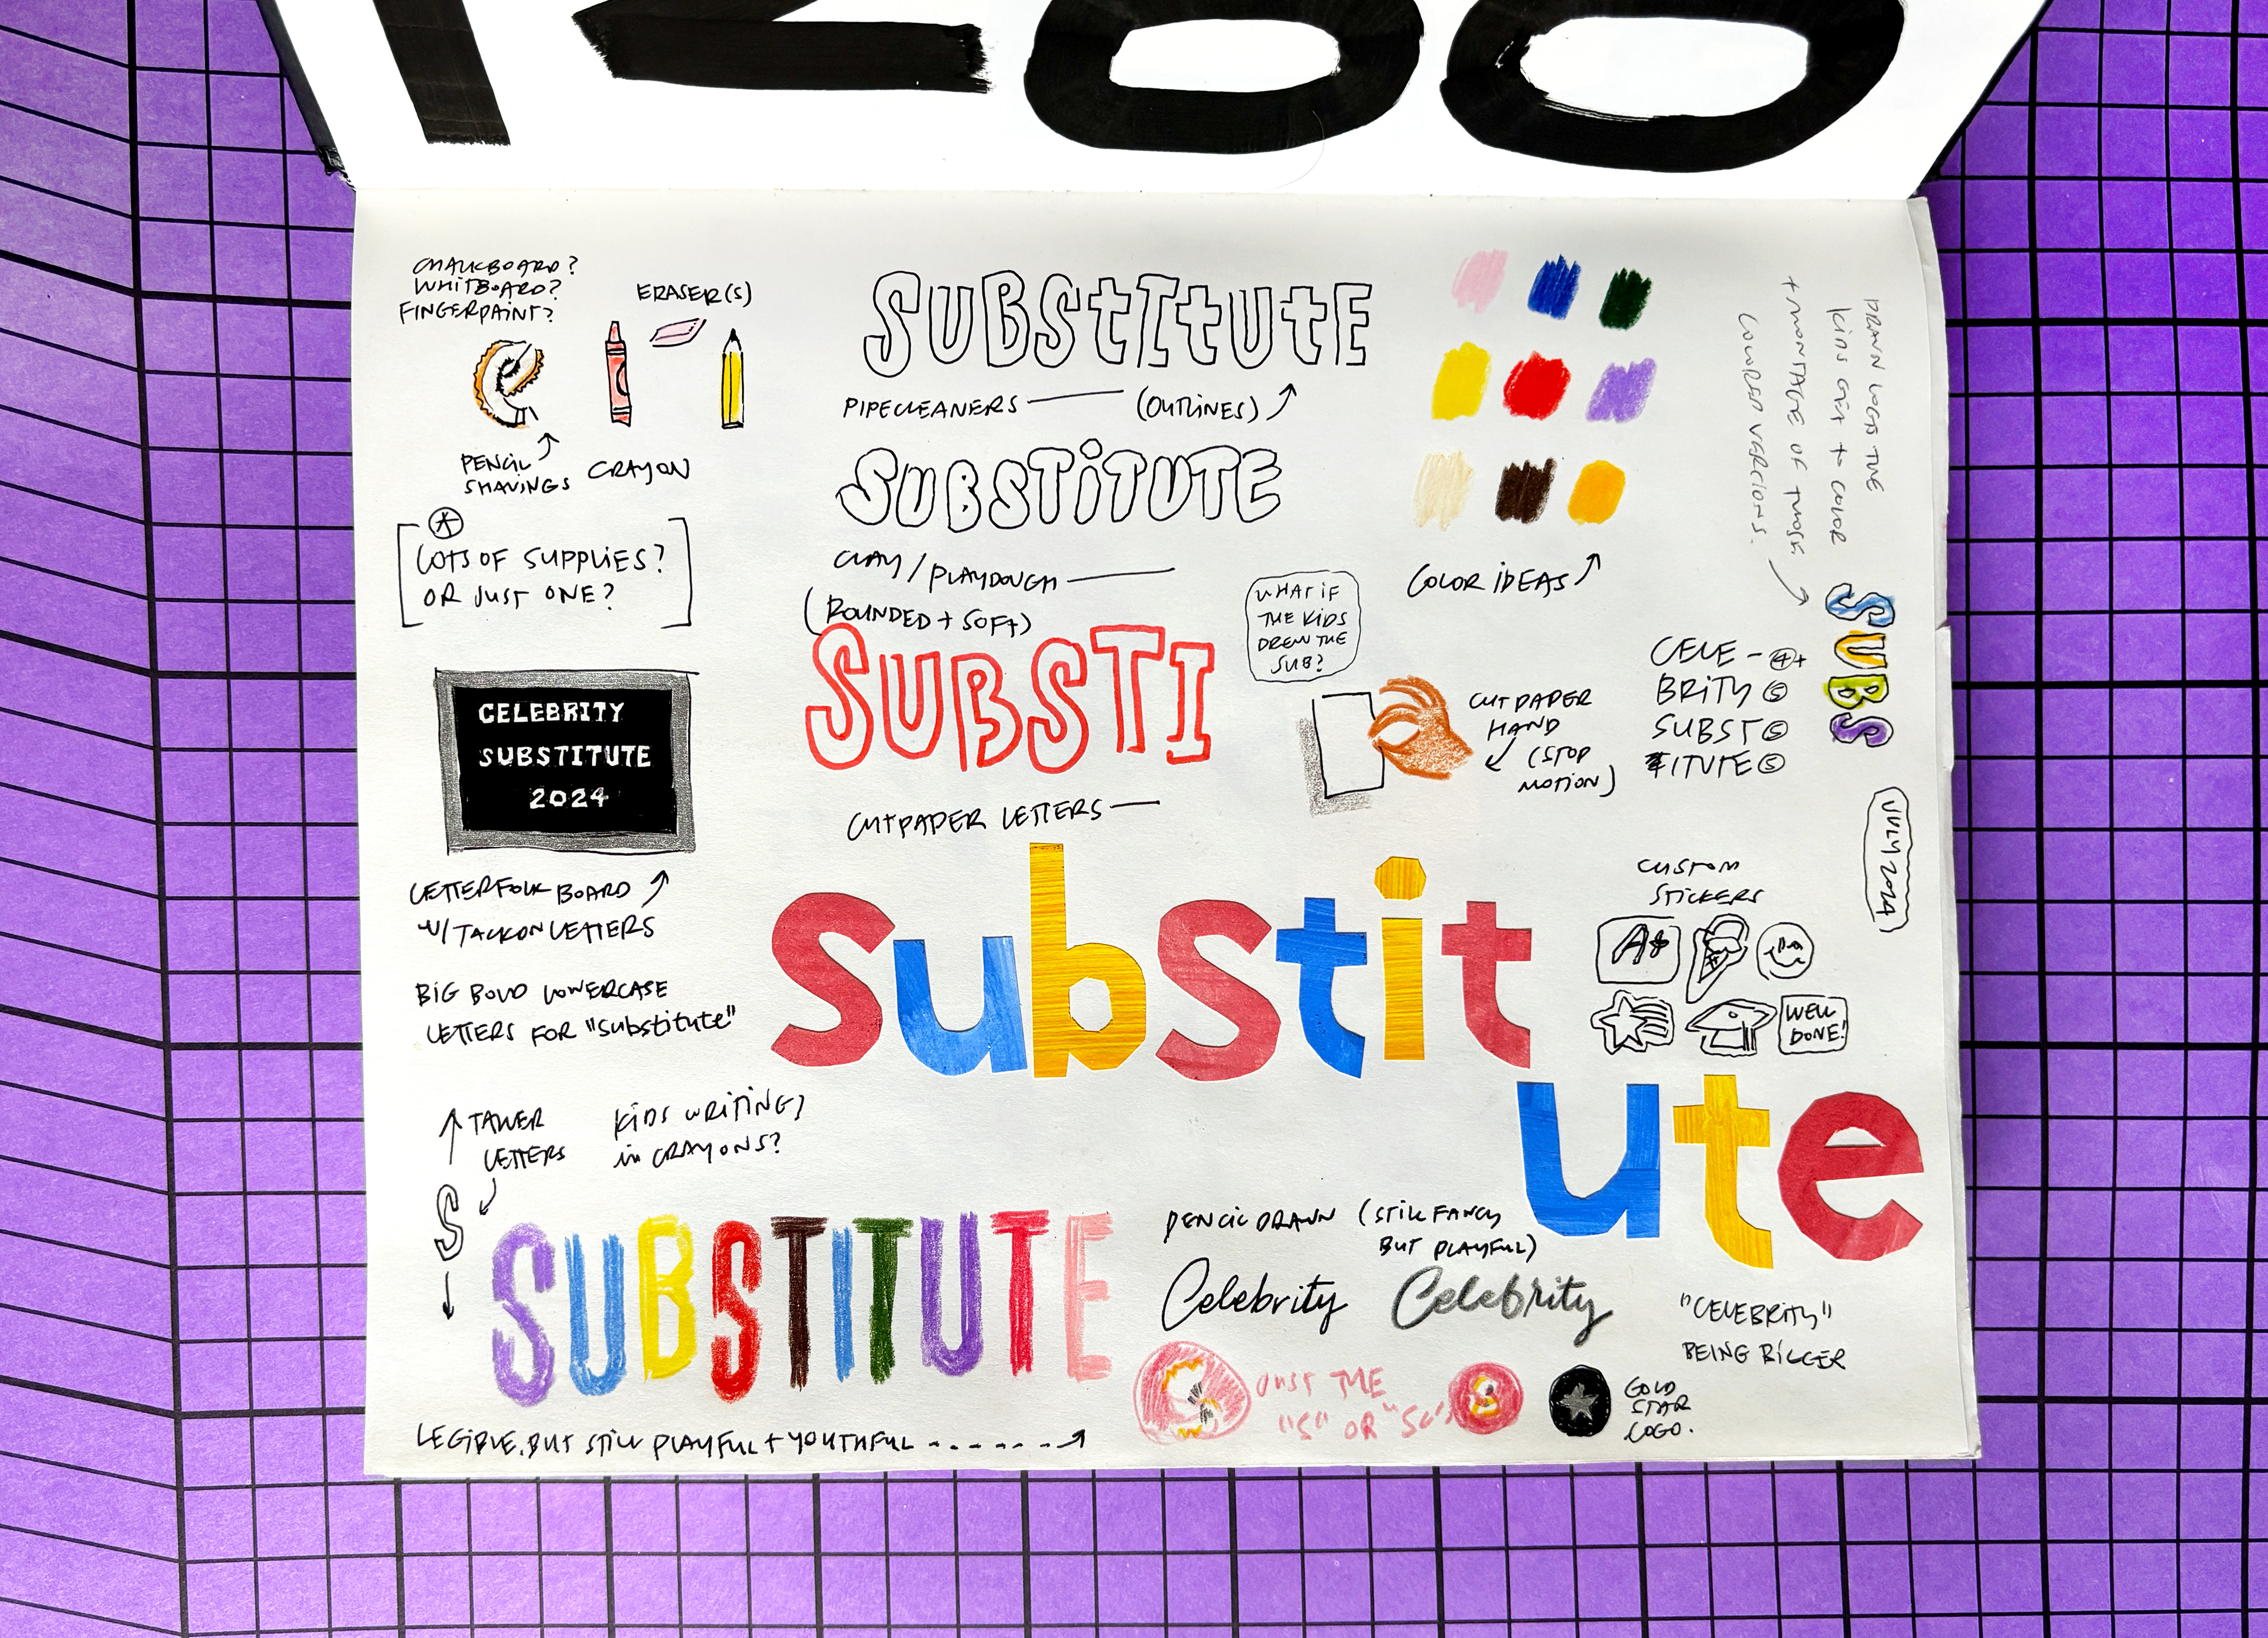 CHALKBOARD?
WHITBOARD?
FINGERPAINT?
ERASER(S)
PENCIL
SHAVINGS
CRAYON
LOTS OF SUPPLIES?
OR JUST ONE?
CELEBRITY
SUBSTITUTE
2024
LETTERFOLK BOARD
W/ TACKON LETTERS
BIG BOLD LOWERCASE
LETTERS FOR "substitute"
TALLER
LETTERS
S
KIDS WRITING
in CRAYONS?
SUBSTITUTE
LEGIBLE, BUT STILL PLAYFUL + YOUTHFUL
SUBStItUtE
PIPECLEANERS
(OUTLINES)
SUBSTiTUTE
CLAY / PLAYDOUGH
(ROUNDED + SOFt)
SUBSTI
CUTPAPER LETTERS
substit
ute
WHAT iF
THE KiDS
DREW THE
SUB?
CUT PAPER
HAND
(STOP
MOTION)
COLOR iDEAS
DRAWN LOGOS THE
KIDS GET to COLOR
+ MONTAGE OF THOSE
COLORED VERCIONS.
SUBS
CELE - 4+
BRITY 5
SUBST 5
ITUTE 5
JULY 2024
CUSTOM
STICKERS
A+
WELL
DONE!
PENCIL DRAWN (STILL FANCY
BUT PLAYFUL)
Celebrity
Celebrity
"CELEBRITY"
BEING BIGGER
JUST THE
"S" OR "SC"
S
GOLD
STAR
LOGO.